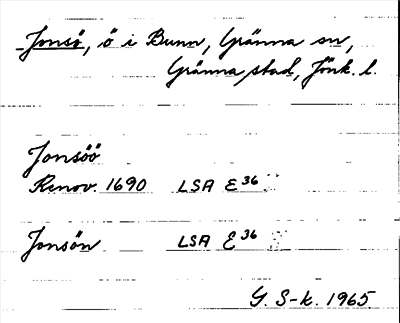 Jonsö, ö i Bunn, Gränna sn,
Gränna stad, Jönk. l.
Jonsöö
Renov. 1690 LSA E 36
Jonsön LSA E 36
G. S-k. 1965